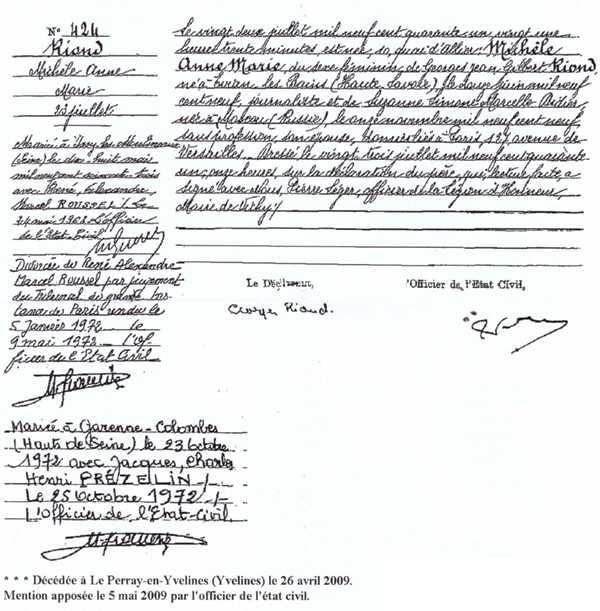 N° 424
Riond
Michèle Anne
Marie
22 juillet
Mariée à
(Eure) le dix huit mai
mil neuf cent soixante trois
avec René, Alexandre
Marcel ROUSSEL / Le
24 mai 1963 L'officier
de l'Etat Civil
Divorcée de René Alexandre
Marcel Roussel par jugement
du Tribunal de grande Ins-
tance de Paris rendu le
5 Janvier 1972 le
9 mai 1972 - l'Of-
ficier de l'Etat Civil
Mariée à Garenne-Colombes
(Hauts de Seine) le 23 Octobre
1972 avec Jacques, Charles
Henri PREZELIN /
Le 25 Octobre 1972 /
L'Officier de l'Etat-Civil.
Le vingt deux juillet mil neuf cent quarante un, vingt une
heures trente minutes est née, 10, quai d'Allier: Michèle
Anne Marie du sexe féminin de Georges Jean Gilbert Riond,
né à Evian les Bains (Haute Savoie) le douze juin mil neuf
cent neuf, journaliste et de Suzanne Simone Marcelle
née à Moscou (Russie) le onze novembre mil neuf cent neuf,
sans profession son épouse, domiciliés à Paris 127 avenue de
Versailles. Dressé le vingt trois juillet mil neuf cent quarante
un, onze heures, sur la déclaration du père, qui lecture faite, a
signé avec Nous, Pierre Léger, officier de la Légion d'Honneur,
Maire de Vichy /
Le Déclarant,
l'Officier de l'Etat Civil,
Georges Riond.
* * * Décédée à Le Perray-en-Yvelines (Yvelines) le 26 avril 2009.
Mention apposée le 5 mai 2009 par l'officier de l'état civil.